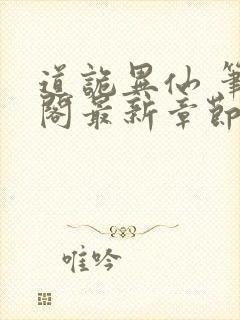 道詭異仙 筆
閣最新章節
唯吟